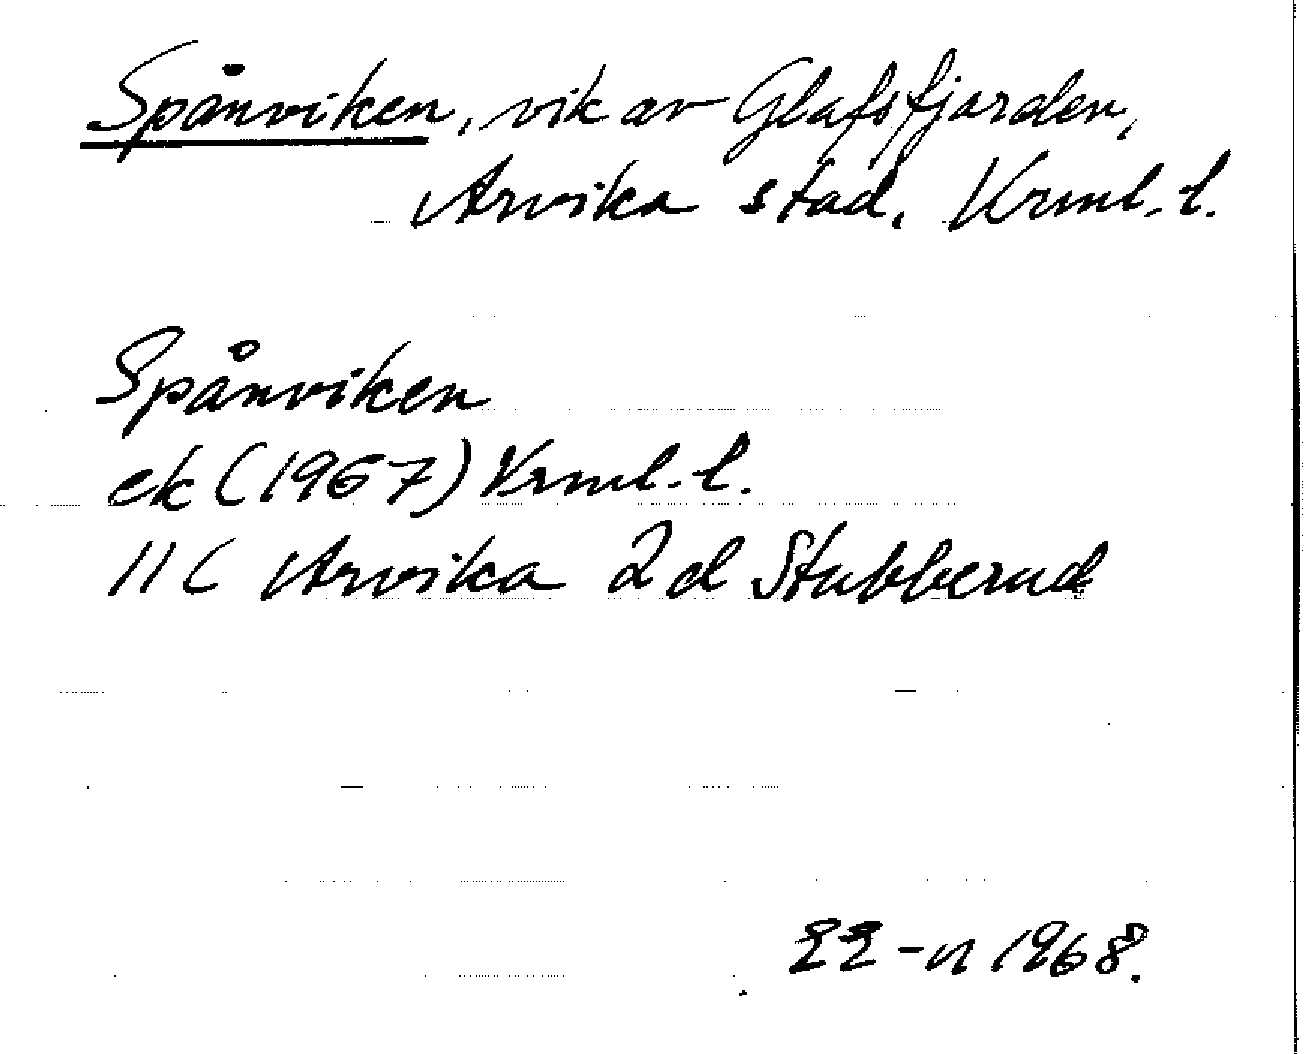 Spånviken, vik av Glafsfjorden,
Arvika stad, Vrml. l.
Spånviken
ek (1967) Vrml. l.
11C Arvika 2d Stubberud
1968.